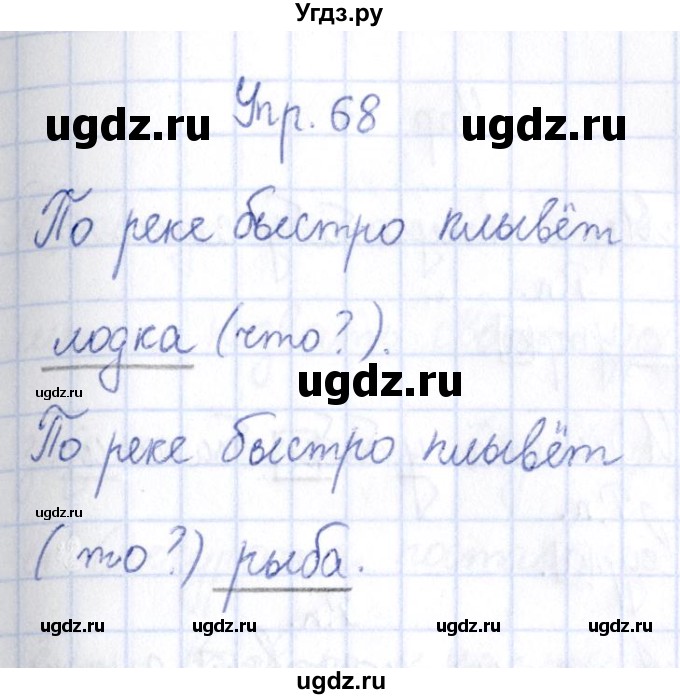 Угдз.ру
ugdz.ru Упр. 68 ugdz.ru
По реке быстро плывёт
лодка (что?).
ugdz.ru ugdz.ru
По реке быстро плывёт
ugdz.ru
(кто?) рыба.
ugdz.ru ugdz.ru ugdz.ru ugdz.ru
ugdz.ru